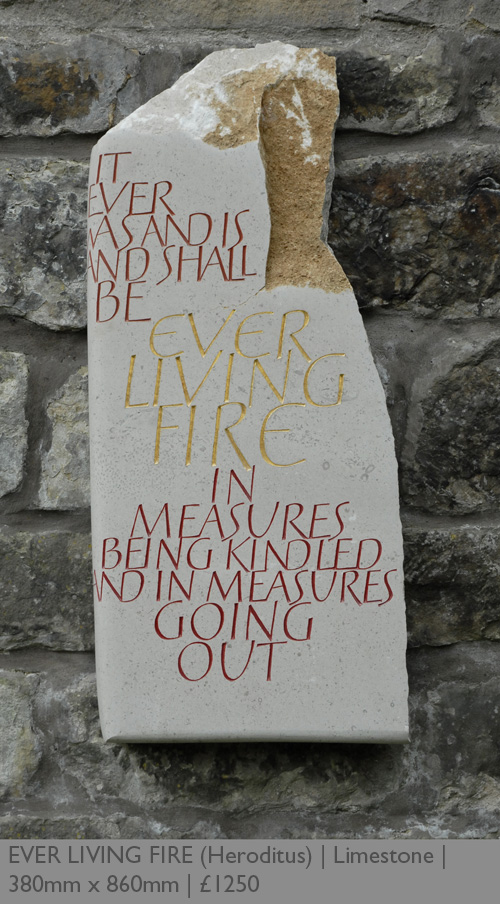 IT
EVER
WAS AND IS
AND SHALL
BE
EVER
LIVING
FIRE
IN
MEASURES
BEING KINDLED
AND IN MEASURES
GOING
OUT
EVER LIVING FIRE (Heroditus) | Limestone |
380mm x 860mm | £1250